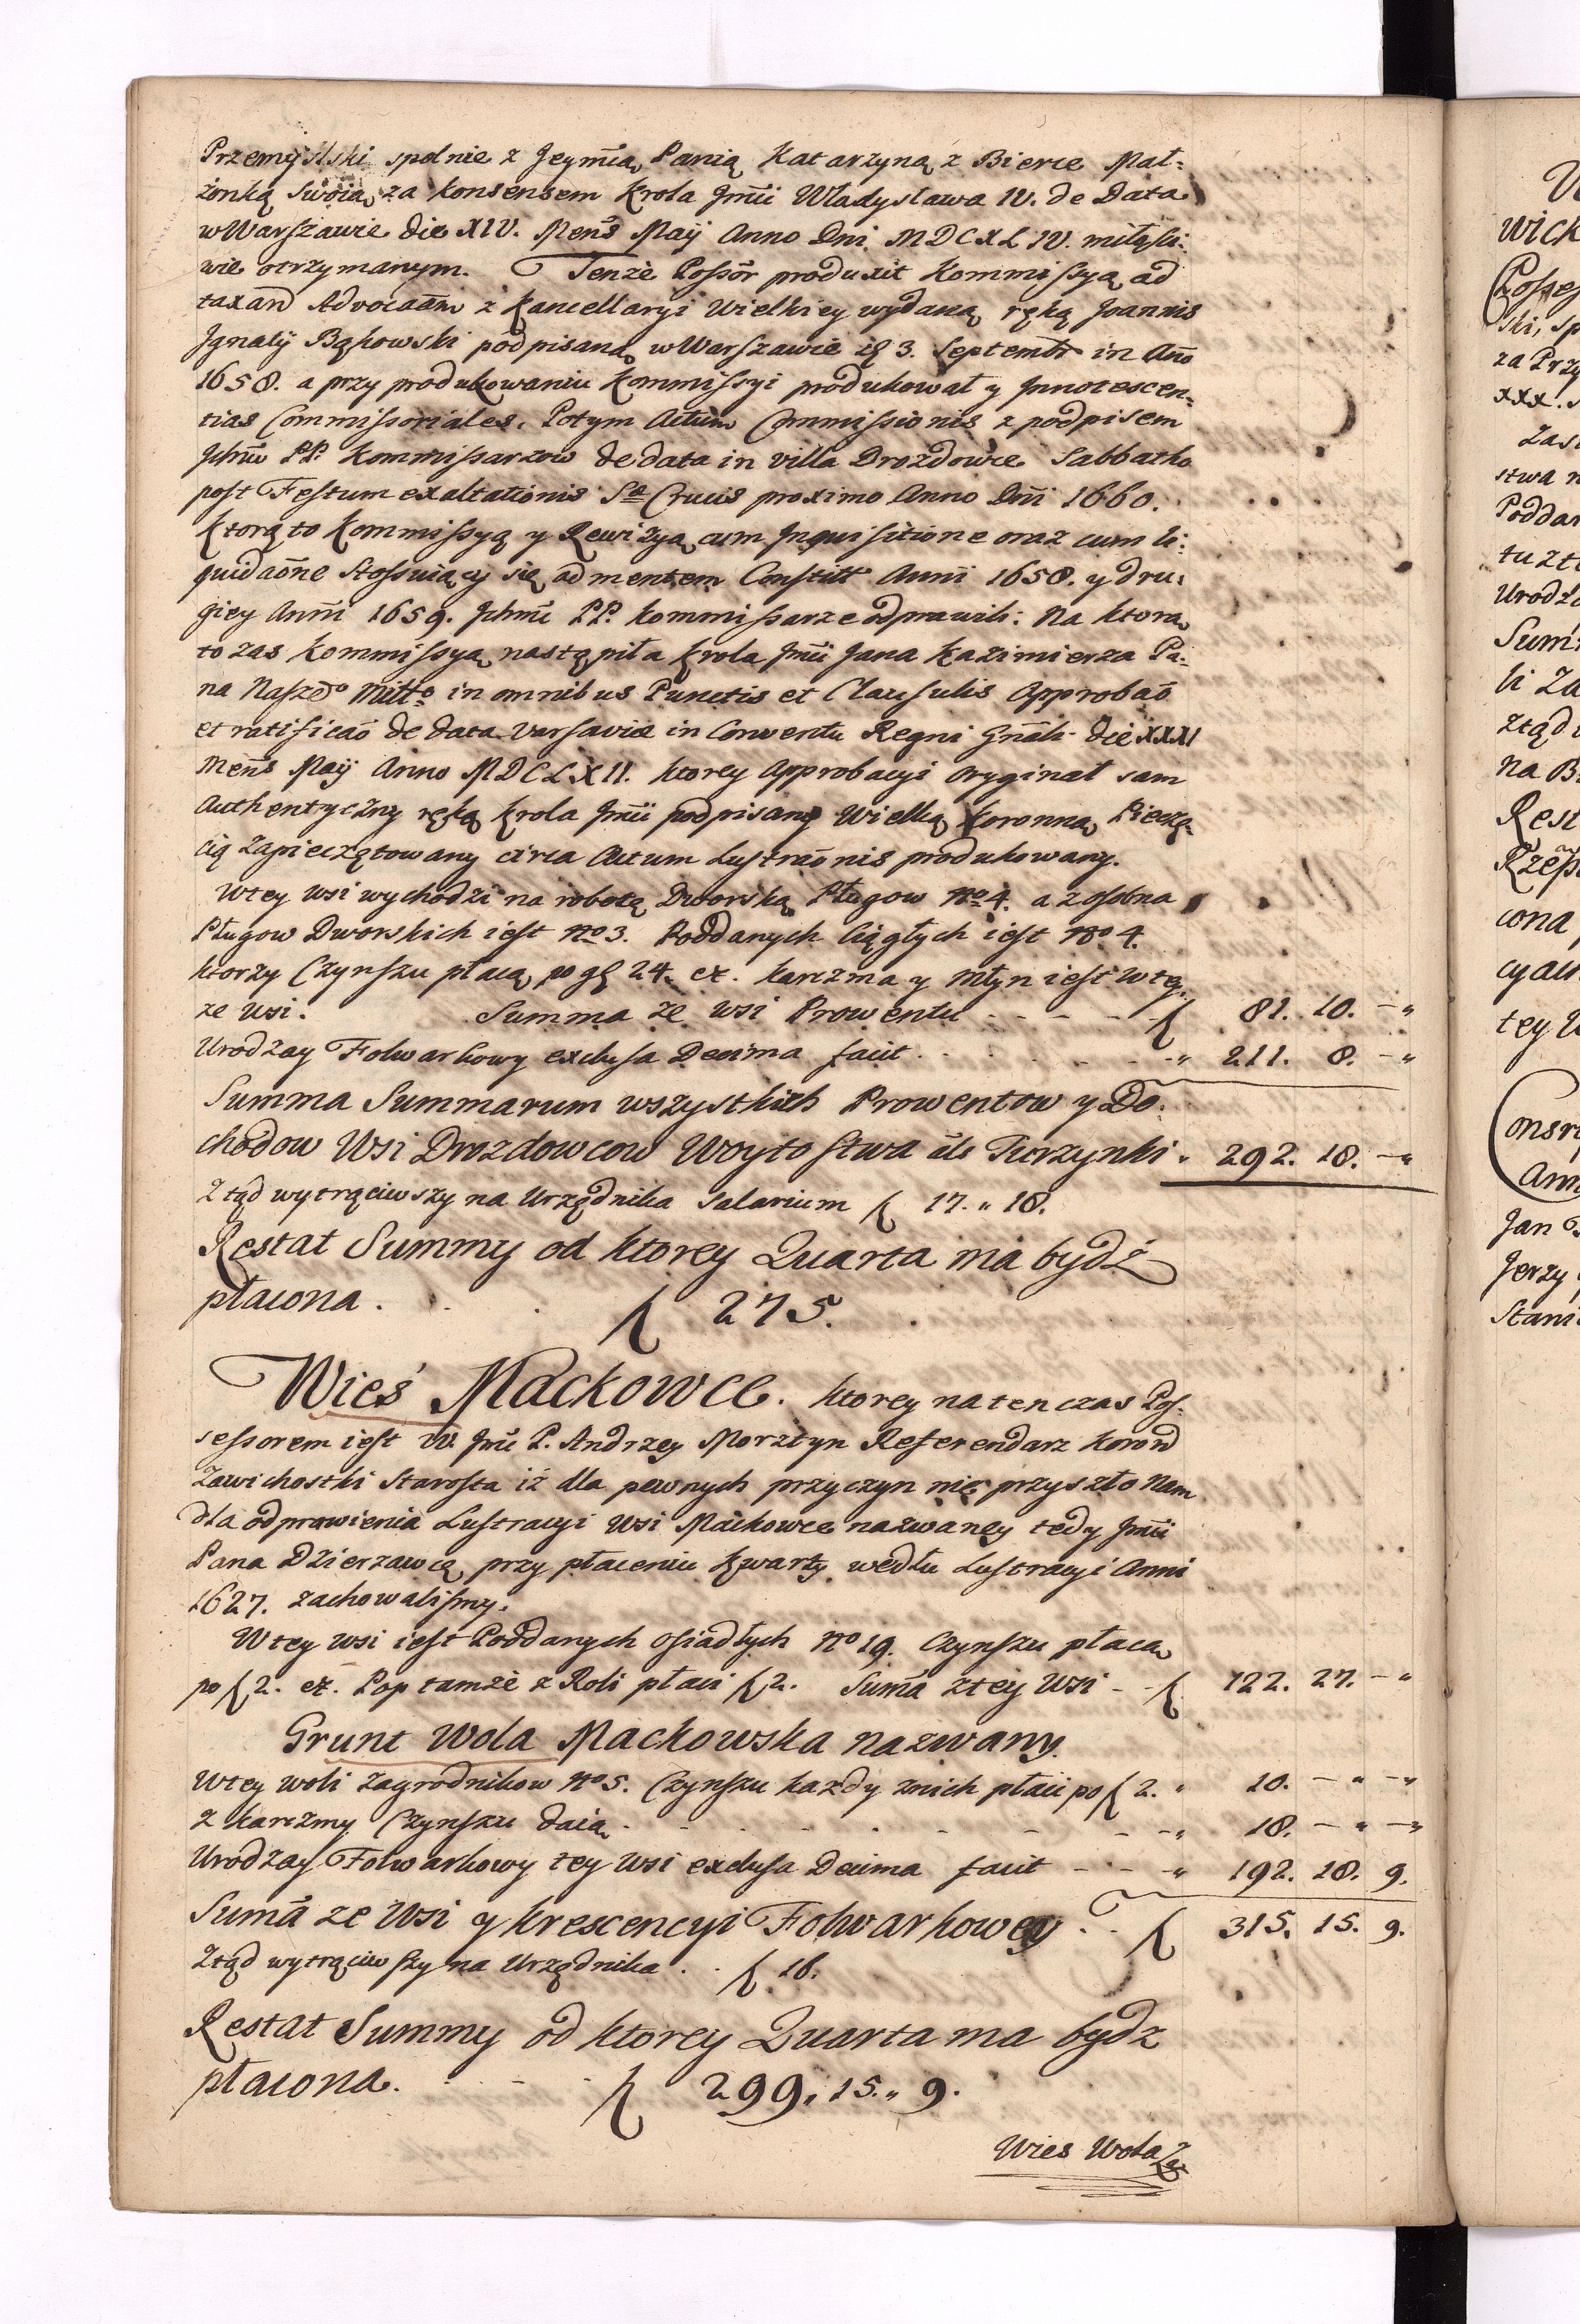 Przemyslski spolnie z Jeymcią Panią Katarzyną z Bierce Mał-
żonką Swoią za konsensem Krola Jmci Władysława IV. de Data
w Warszawie die XIV. Mens Maij Anno Dni MDCXLIV. miłości-
wie otrzymanym. Tenże Possor produxit Kommissyą ad
taxand Advocatiam z Kancellaryi Wielkiey wydaną ręką Joannis
Jgnatij Bąkowski podpisaną w Warszawie 3. Septembr in Anno
1658. a przy produkowaniu Kommissyi produkował y Jnnotescen-
tias Commissoriales. Potym Actum Commissionis z podpisem
Jchmciow PP. Kommissarzow de data in villa Drozdowce Sabbatho
post Festum exaltationis Stae Crucis proximo Anno Dni 1660.
Ktorą to Kommissyą y Rewizyą cum Jnquisitione oraz cum li-
quidaone stosuiący się ad mentem Constitt Anni 1658. y dru-
giey Anni 1659. Jchmc PP. Kommissarze odprawili: Na ktorą
to zas Kommissyą nastąpiła Krola Jmci Jana Kazimierza Pa-
na Naszeo Miłło in omnibus Punctis et Clausulis Approbao
et ratificao de data Varsavia in Conventu Regni Gnali die XXXI
Mens Maij Anno MDCLXII. ktorey Approbacyi oryginał sam
Authentyczny ręką Krola Jmci podpisany Wielką Koronną Pieczę-
cią Zapieczętowany circa Actum Lustraonis produkowany.
W tey wsi wychodzi na robotę Dworską Pługow No 4. a z osobna
Pługow Dworskich iest No 3. Poddanych Ciągłych iest No 4.
ktorzy Czynszu płacą po g 24. et. karczma y młyn iest w tey-
ze wsi. Summa ze wsi Prowentu - - - - f 81. 10. - "
Urodzay Folwarkowy exclusa Decima facit . . . - - " 211. 8. - "
Summa Summarum wszystkich Prowentow y Do-
chodow Wsi Drozdowcow Woytostwa als Turzynki " 292. 18. - "
Ztąd wytrąciwszy na Urzędnika salarium f 17. " 18.
Restat Summy od ktorey Quarta ma bydź
płacona . . . f 275.
Wieś Mackowce. ktorey na ten czas Pos-
sessorem iest W. Jmc P. Andrzey Morztyn Referendarz Koron
Zawichostki Starosta iż dla pewnych przyczyn nie przyszło Nam
dla odprawienia Lustracyi wsi Mackowce nazwaney tedy Jmci
Pana Dzierzawcę przy płaceniu kwarty wedłu Lustracyi Anni
1627. zachowalismy.
W tey wsi iest Poddanych osiadłych No 19. Czynszu płacą
po f 2. et. Pop tamże z Roli płaci f 2. Suma z tey Wsi - - f 122. 27. - "
Grunt Wola Mackowska nazwany.
W tey woli zagrodnikow No 5. Czynszu kazdy z nich płaci po f 2. " 10. - " - "
z karczmy Czynszu daią . - . - . - - - " 18. - " - "
Urodzay Folwarkowy tey wsi exclusa Decima facit - - - " 192. 18. 9.
Suma ze Wsi y krescencyi Folwarkowey . . f 315. 15. 9.
Ztąd wytrąciwszy na Urzędnika . . f 16.
Restat Summy od ktorey Quarta ma bydz
płacona. . - - . f 299. 15. " 9.
Wies Wola